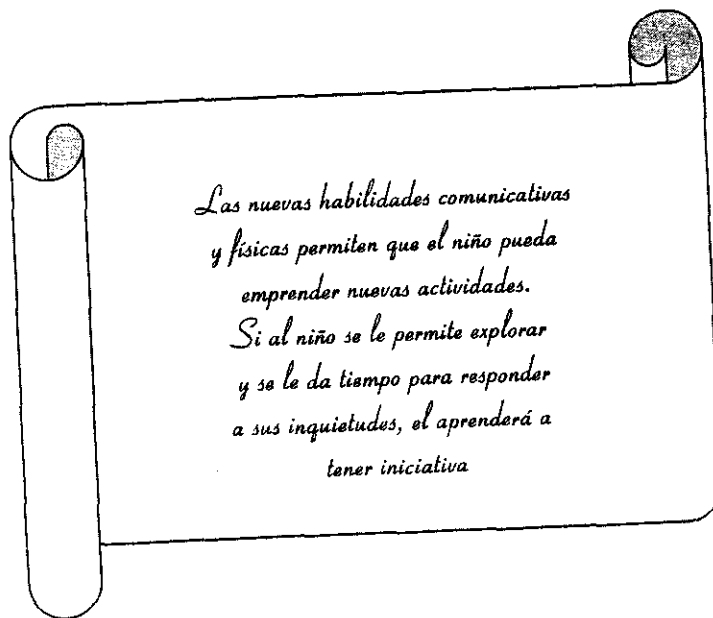 Las nuevas habilidades comunicativas
y físicas permiten que el niño pueda
emprender nuevas actividades.
Si al niño se le permite explorar
y se le da tiempo para responder
a sus inquietudes, el aprenderá a
tener iniciativa